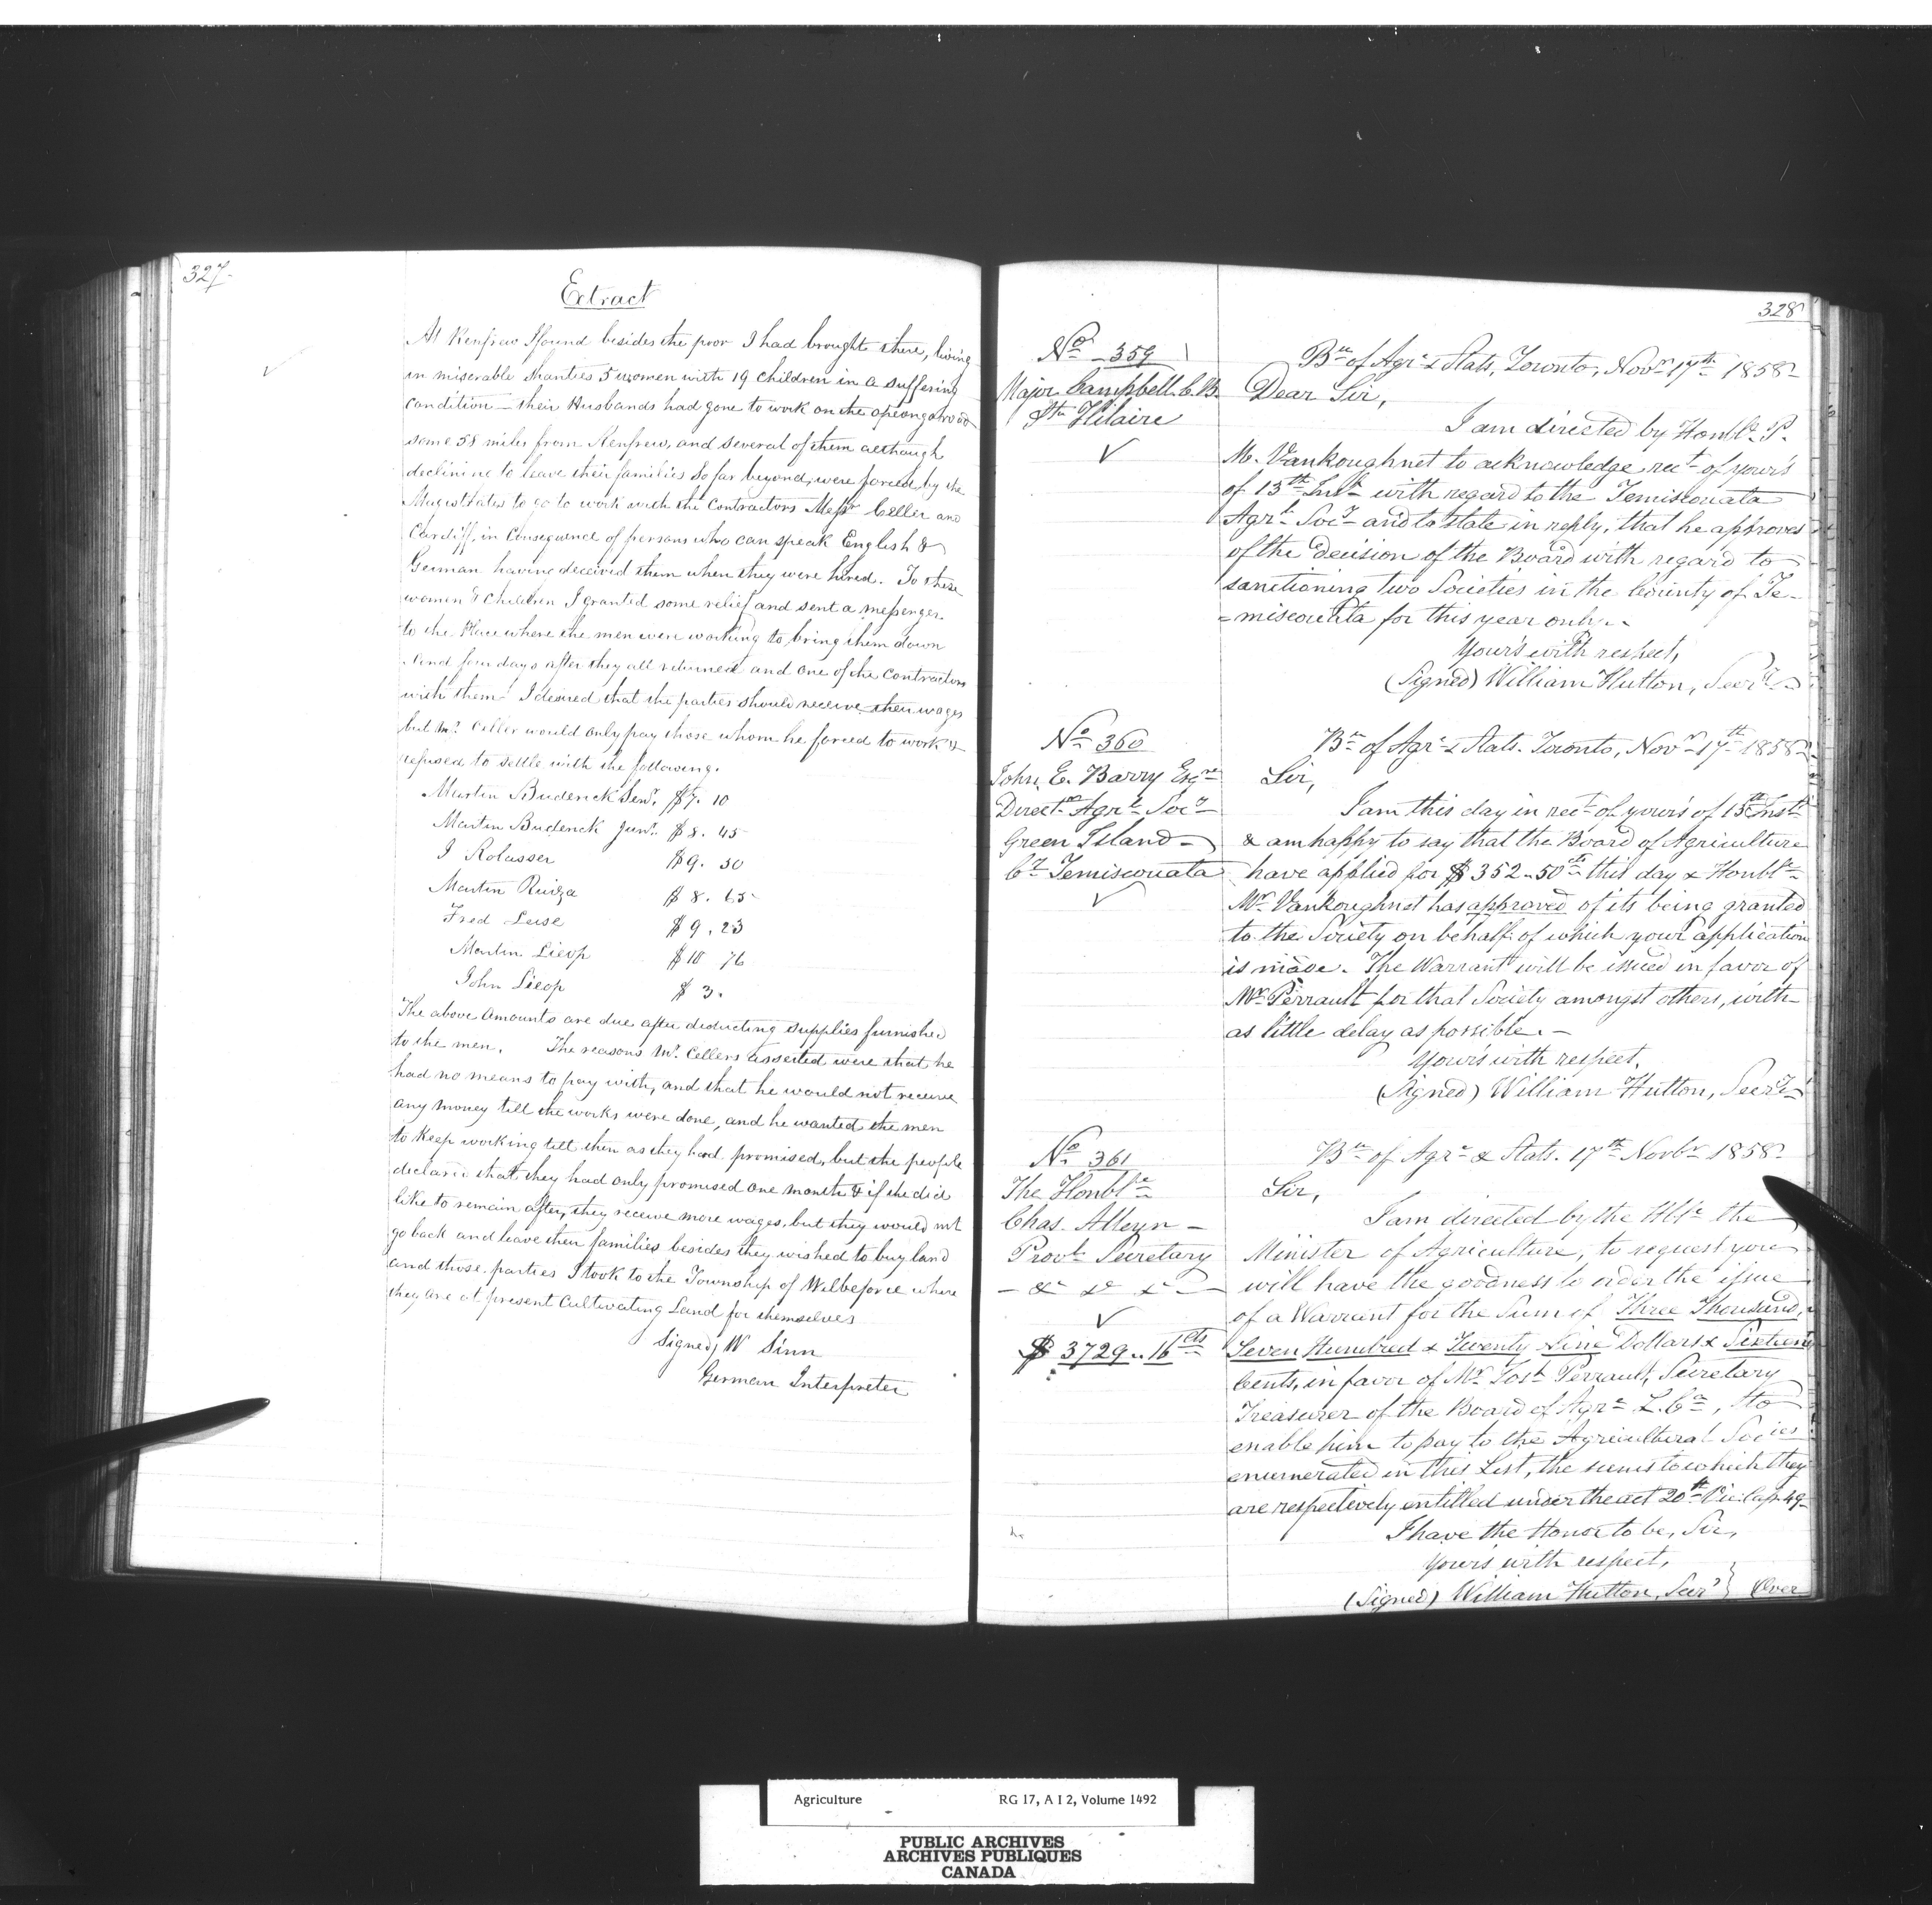 327
Extract
At Renfrew I found besides the poor I had brought there, living
in miserable shanties 5 women with 19 children in a suffering
condition — their Husbands had gone to work on the opeongo road
some 58 miles from Renfrew, and several of them although
declining to leave their families so far beyond, were forced by the
Magistrates to go to work with the Contractors Messrs Celler and
Cardiff, in Consequence of persons who can speak English &
German having deceived them when they were hired. To these
women & children I granted some relief and sent a messenger
to the Place where the men were working to bring them down
and four days after they all returned and one of the Contractors
with them. I desired that the parties should receive their wages
but Mr. Celler would only pay those whom he forced to work &
refused to settle with the following.
Martin Buderick Senr. $7. 10
Martin Buderick Junr. $8. 45
J Rolasser $9. 50
Martin Ruiza $8. 65
Fred Leise $9. 23
Martin Lieop $10 76
John Lieop $3.
The above Amounts are due after deducting supplies furnished
to the men. The reasons Mr. Cellers asserted were that he
had no means to pay with, and that he would not receive
any money till the works were done, and he wanted the men
to keep working till then as they had promised, but the people
declared that they had only promised one month & if she did
like to remain after, they receive more wages, but they would not
go back and leave their families besides they wished to buy land
and those parties I took to the Township of Wilbeforce where
they are at present Cultivating Land for themselves
Signed) W Sinn
German Interpreter
328
No 359
Major Campbell C.B.
St Hilaire
Bu of Agre & Stats, Toronto, Novr 17th 1858
Dear Sir,
I am directed by Honble P.
M. Vankoughnet to acknowledge rect of your's
of 13th Inst with regard to the Temiscouata
Agrl Socy and to state in reply, that he approves
of the decision of the Board with regard to
sanctioning two Societies in the County of Te-
=miscouata for this year only.
Your's with respect,
(Signed) William Hutton, Secry
No 360
John E. Barry Esqre
Director Agrl Socy
Green Island
Cy Temiscouata
Bu of Agre & Stats. Toronto, Novr 17th 1858
Sir,
I am this day in rect of your's of 13th Inst
& am happy to say that the Board of Agriculture
have applied for $352.50cts this day & Honble
Mr Vankoughnet has approved of its being granted
to the Society on behalf of which your application
is made. The Warrant will be issued in favor of
Mr Perrault for that Society amongst others, with
as little delay as possible.
Your's with respect,
(Signed) William Hutton, Secry
No 361
The Honble
Chas. Alleyn
Provl Secretary
&c &c &c
$ 3729.. 16cts
Bu of Agre & Stats. 17th Novbr 1858
Sir,
I am directed by the Hble the
Minister of Agriculture, to request you
will have the goodness to order the issue
of a Warrant for the Sum of Three Thousand,
Seven Hundred & Twenty Nine Dollars & Sixteen
Cents, in favor of Mr Josh Perrault, Secretary
Treasurer of the Board of Agre L. Ca, to
enable him to pay to the Agricultural Socies
enumerated in this List, the sums to which they
are respectively entitled under the act 20th Vic. Cap 49
I have the Honor to be, Sir,
Your's with respect,
(Signed) William Hutton, Secr } Over
Agriculture RG 17, A I 2, Volume 1492
PUBLIC ARCHIVES
ARCHIVES PUBLIQUES
CANADA